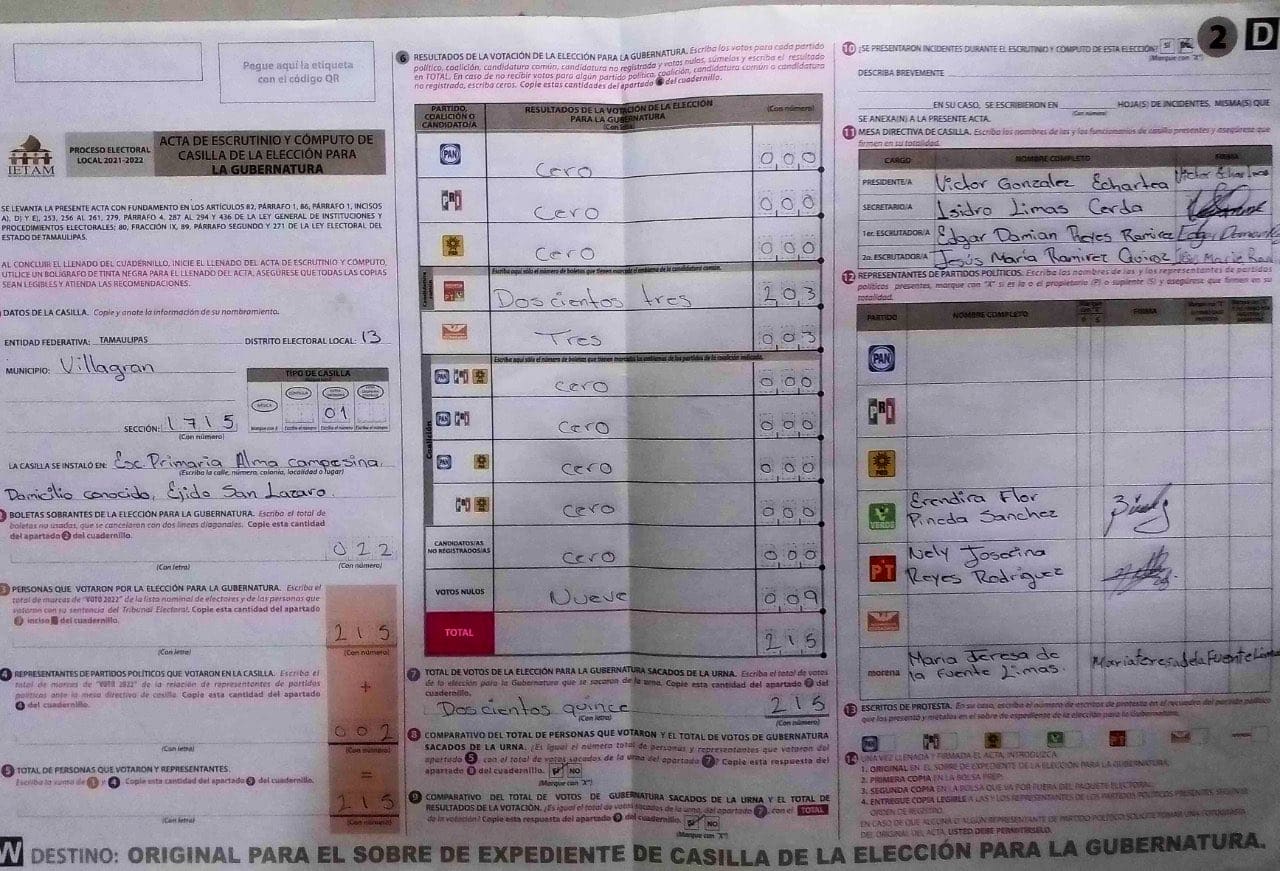 Pegue aquí la etiqueta
con el código QR
IETAM
PROCESO ELECTORAL
LOCAL 2021-2022
ACTA DE ESCRUTINIO Y CÓMPUTO DE
CASILLA DE LA ELECCIÓN PARA
LA GUBERNATURA
SE LEVANTA LA PRESENTE ACTA CON FUNDAMENTO EN LOS ARTÍCULOS 82, PÁRRAFO 1, 86, PÁRRAFO 1, INCISOS
A), D) Y E), 253, 256 AL 261, 279, PÁRRAFO 4, 287 AL 294 Y 436 DE LA LEY GENERAL DE INSTITUCIONES Y
PROCEDIMIENTOS ELECTORALES; 80, FRACCIÓN IX, 89, PÁRRAFO SEGUNDO Y 271 DE LA LEY ELECTORAL DEL
ESTADO DE TAMAULIPAS.
AL CONCLUIR EL LLENADO DEL CUADERNILLO, INICIE EL LLENADO DEL ACTA DE ESCRUTINIO Y CÓMPUTO,
UTILICE UN BOLÍGRAFO DE TINTA NEGRA PARA EL LLENADO DEL ACTA, ASEGÚRESE QUE TODAS LAS COPIAS
SEAN LEGIBLES Y ATIENDA LAS RECOMENDACIONES.
DATOS DE LA CASILLA. Copie y anote la información de su nombramiento.
ENTIDAD FEDERATIVA: TAMAULIPAS DISTRITO ELECTORAL LOCAL: 13
MUNICIPIO: Villagran
TIPO DE CASILLA
BÁSICA
01
SECCIÓN: 1715
(Con número)
LA CASILLA SE INSTALÓ EN: Esc. Primaria Alma campesina,
(Escriba la calle, número, colonia, localidad o lugar)
Domicilio conocido, Ejido San Lazaro.
BOLETAS SOBRANTES DE LA ELECCIÓN PARA LA GUBERNATURA. Escriba el total de
boletas no usadas, que se cancelaron con dos líneas diagonales. Copie esta cantidad
del apartado 2 del cuadernillo.
022
(Con letra) (Con número)
3 PERSONAS QUE VOTARON POR LA ELECCIÓN PARA LA GUBERNATURA. Escriba el
total de marcas de "VOTÓ 2022" de la lista nominal de electores y de las personas que
votaron con su sentencia del Tribunal Electoral. Copie esta cantidad del apartado
3 inciso del cuadernillo.
215
(Con letra) (Con número)
4 REPRESENTANTES DE PARTIDOS POLÍTICOS QUE VOTARON EN LA CASILLA. Escriba el
total de marcas de "VOTÓ 2022" de la relación de representantes de partidos
políticos ante la mesa directiva de casilla. Copie esta cantidad del apartado
4 del cuadernillo.
+
002
(Con letra) (Con número)
5 TOTAL DE PERSONAS QUE VOTARON Y REPRESENTANTES.
Escriba la suma de 3 y 4. Copie esta cantidad del apartado 5 del cuadernillo.
=
215
(Con letra) (Con número)
6 RESULTADOS DE LA VOTACIÓN DE LA ELECCIÓN PARA LA GUBERNATURA. Escriba los votos para cada partido
político, coalición, candidatura común, candidatura no registrada y votos nulos, súmelos y escriba el resultado
en TOTAL. En caso de no recibir votos para algún partido político, coalición, candidatura común o candidatura
no registrada, escriba ceros. Copie estas cantidades del apartado 6 del cuadernillo.
PARTIDO, COALICIÓN O CANDIDATO/A
RESULTADOS DE LA VOTACIÓN DE LA ELECCIÓN
PARA LA GUBERNATURA
(Con letra)
(Con número)
PAN Cero 000
PRI Cero 000
PRD Cero 000
Candidatura común
Escriba aquí sólo el número de boletas que tienen marcado el emblema de la candidatura común.
PT Doscientos tres 203
Tres 003
Escriba aquí sólo el número de boletas que tienen marcados los emblemas de los partidos de la coalición indicada.
Coalición
PAN PRI PRD cero 000
PAN PRI cero 000
PAN PRD cero 000
PRI PRD cero 000
CANDIDATOS/AS NO REGISTRADOS/AS cero 000
VOTOS NULOS Nueve 009
TOTAL 215
7 TOTAL DE VOTOS DE LA ELECCIÓN PARA LA GUBERNATURA SACADOS DE LA URNA. Escriba el total de votos
de la elección para la Gubernatura que se sacaron de la urna. Copie esta cantidad del apartado 7 del
cuadernillo.
Doscientos quince 215
(Con letra) (Con número)
8 COMPARATIVO DEL TOTAL DE PERSONAS QUE VOTARON Y EL TOTAL DE VOTOS DE GUBERNATURA
SACADOS DE LA URNA. ¿Es igual el número total de personas y representantes que votaron del
apartado 5 con el total de votos sacados de la urna del apartado 7? Copie esta respuesta del
apartado 8 del cuadernillo. SÍ NO
(Marque con "X")
9 COMPARATIVO DEL TOTAL DE VOTOS DE GUBERNATURA SACADOS DE LA URNA Y EL TOTAL DE
RESULTADOS DE LA VOTACIÓN. ¿Es igual el total de votos sacados de la urna, del apartado 7, con el TOTAL
de la votación? Copie esta respuesta del apartado 9 del cuadernillo. SÍ NO
(Marque con "X")
2 D
10 ¿SE PRESENTARON INCIDENTES DURANTE EL ESCRUTINIO Y CÓMPUTO DE ESTA ELECCIÓN? SÍ NO
(Marque con "X")
DESCRIBA BREVEMENTE
EN SU CASO, SE ESCRIBIERON EN HOJA(S) DE INCIDENTES, MISMA(S) QUE
(Con número)
SE ANEXA(N) A LA PRESENTE ACTA.
11 MESA DIRECTIVA DE CASILLA. Escriba los nombres de las y los funcionarios de casilla presentes y asegúrese que
firmen en su totalidad.
CARGO NOMBRE COMPLETO FIRMA
PRESIDENTE/A Victor Gonzalez Echartea
SECRETARIO/A Isidro Limas Cerda
1er. ESCRUTADOR/A Edgar Damian Reyes Ramirez
2o. ESCRUTADOR/A Jesús Maria Ramirez Quiroz
12 REPRESENTANTES DE PARTIDOS POLÍTICOS. Escriba los nombres de las y los representantes de partidos
políticos presentes, marque con "X" si es la o el propietario (P) o suplente (S) y asegúrese que firmen en su
totalidad.
PARTIDO NOMBRE COMPLETO P S FIRMA
PAN
PRI
PRD
VERDE Erendira Flor
Pineda Sanchez
PT Nely Josefina
Reyes Rodriguez
morena Maria Teresa de
la Fuente Limas. Maria Teresa de la Fuente Limas
13 ESCRITOS DE PROTESTA. En su caso, escriba el número de escritos de protesta en el recuadro del partido político
que los presentó y métalos en el sobre de expediente de la elección para la Gubernatura.
14 UNA VEZ LLENADA Y FIRMADA EL ACTA, INTRODUZCA:
1. ORIGINAL EN EL SOBRE DE EXPEDIENTE DE LA ELECCIÓN PARA LA GUBERNATURA.
2. PRIMERA COPIA EN LA BOLSA PREP.
3. SEGUNDA COPIA EN LA BOLSA QUE VA POR FUERA DEL PAQUETE ELECTORAL.
4. ENTREGUE COPIA LEGIBLE A LAS Y LOS REPRESENTANTES DE LOS PARTIDOS POLÍTICOS PRESENTES, SEGÚN EL
ORDEN DE REGISTRO.
EN CASO DE QUE ALGUNA O ALGÚN REPRESENTANTE DE PARTIDO POLÍTICO SOLICITE TOMAR UNA FOTOGRAFÍA
DEL ORIGINAL DEL ACTA, USTED DEBE PERMITÍRSELO.
W DESTINO: ORIGINAL PARA EL SOBRE DE EXPEDIENTE DE CASILLA DE LA ELECCIÓN PARA LA GUBERNATURA.